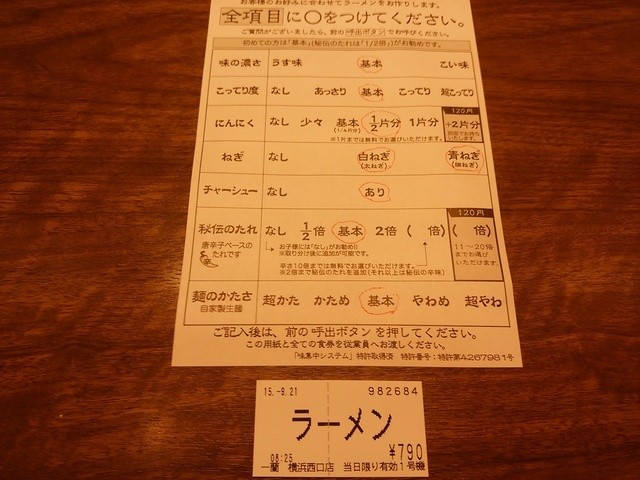 お客様のお好みに合わせてラーメンをお作りします。
全項目に○をつけてください。
ご質問がございましたら、前の呼出ボタンでお呼びください。
初めての方は「基本」(秘伝のたれは「1/2倍」)がお勧めです。
味の濃さ うす味 基本 こい味
こってり度 なし あっさり 基本 こってり 超こってり
にんにく なし 少々 基本 1/2片分 1片分 120円 +2片分
(1/4片分)
※1片までは無料でお選びいただけます。
ねぎ なし 白ねぎ 青ねぎ
(太ねぎ) (細ねぎ)
チャーシュー なし あり
120円
秘伝のたれ なし 1/2倍 基本 2倍 ( 倍) ( 倍)
唐辛子ベースの
たれです
お子様には「なし」がお勧め!!
※取り分け後に追加が可能です。
辛さ10倍までは無料でお選びいただけます。
※2倍まで秘伝のたれを追加(それ以上は秘伝の辛味)
11〜20倍
までお選び
いただけます
麺のかたさ 超かた かため 基本 やわめ 超やわ
自家製生麺
ご記入後は、前の呼出ボタンを押してください。
この用紙と全ての食券を従業員へお渡しください。
「味集中システム」特許取得済 特許番号:特許第4267981号
15.-9.21 982684
ラーメン
¥790
08:25
一蘭 横浜西口店 当日限り有効1号機